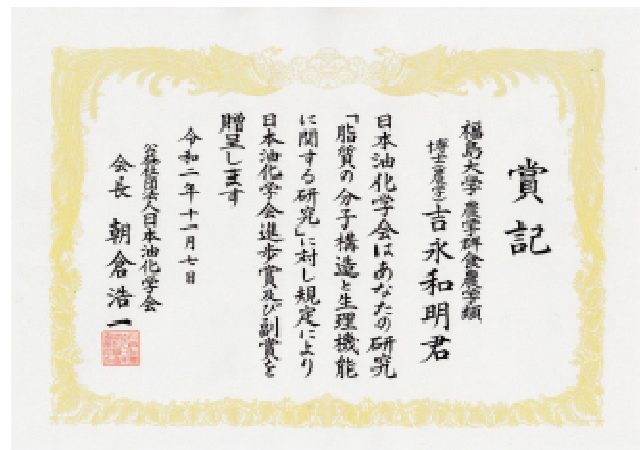 賞記
福島大学 農学群食農学類
博士(農学) 吉永和明君
日本油化学会はあなたの研究
「脂質の分子構造と生理機能
に関する研究」に対し規定により
日本油化学会進歩賞及び副賞を
贈呈します
令和二年十一月七日
公益社団法人日本油化学会
会長 朝倉浩一